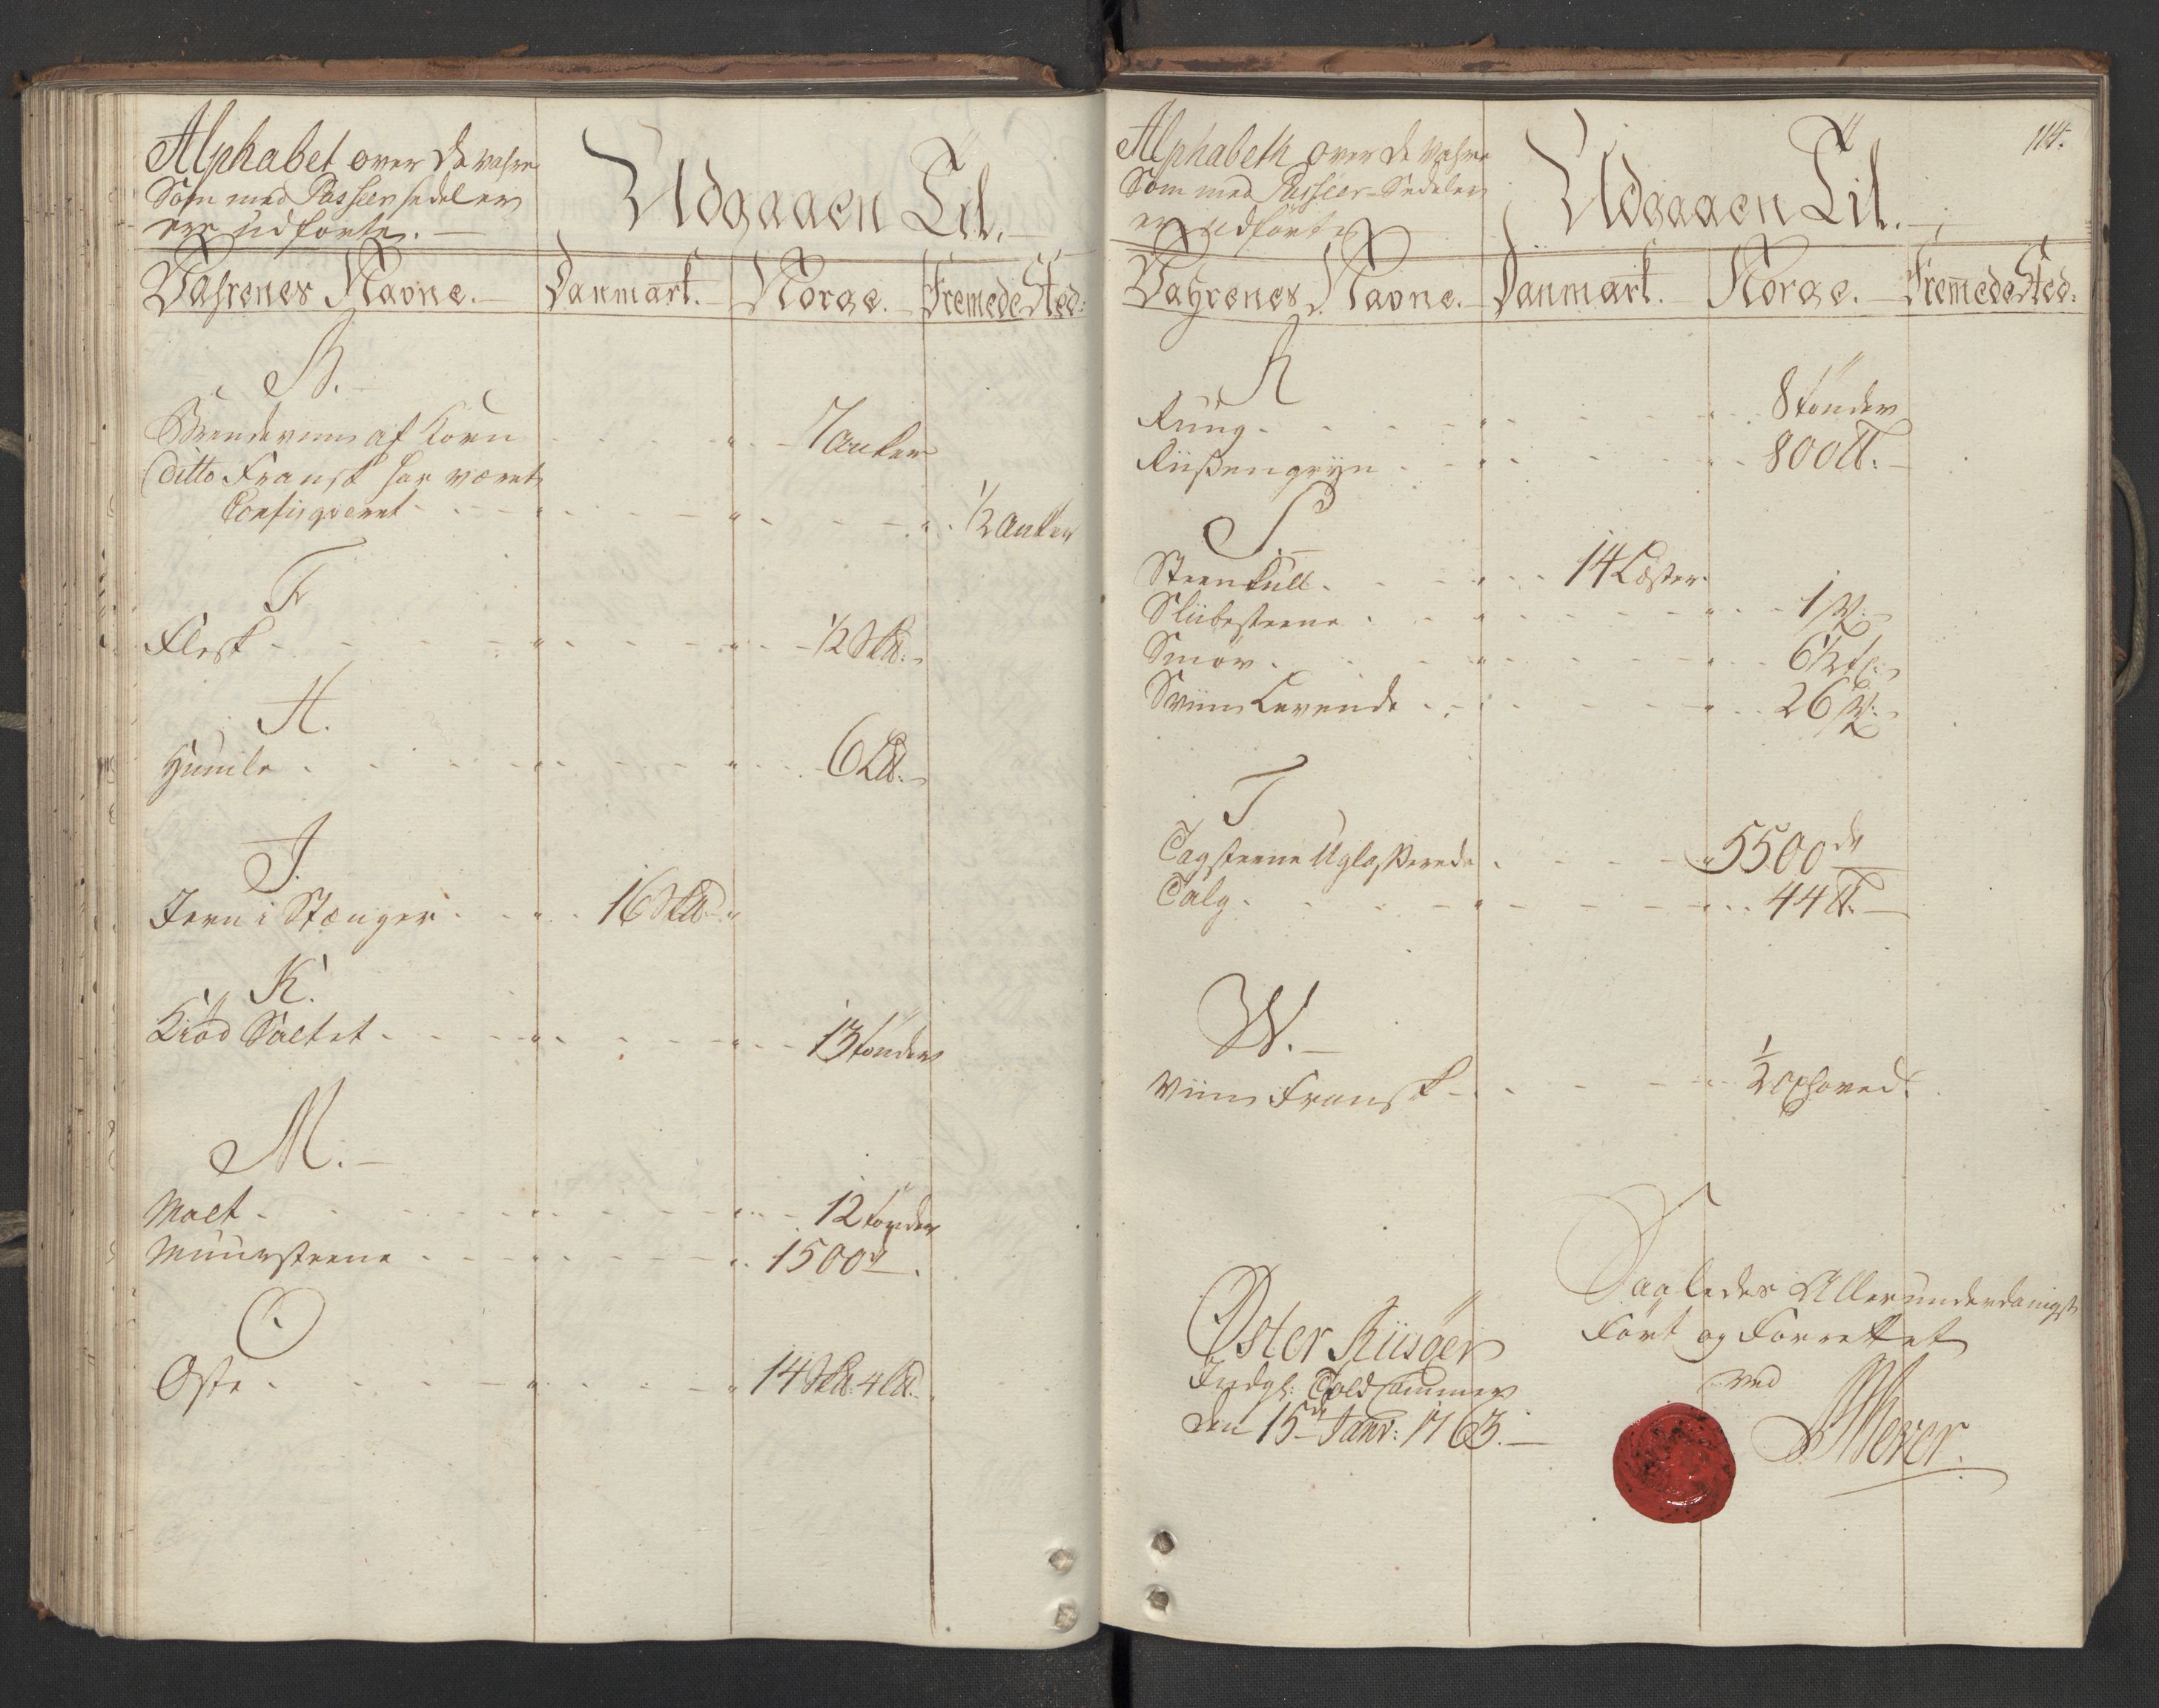 Alphabet over de Vahre
Som med Passeer sedeler
ere udførte.
Udgaaen Til.
Vahrenes Navne. Danmark. Norge. Fremede Sted:
B.
Brendeviin af Korn 7 Anker
Ditto Fransk har været
Confisqveret 1/2 Anker
F
Flesk 1/2 Sk℔:
H.
Humle 6 L℔.
J.
Jern i Stænger 16 Sk℔
K.
Kiød Saltet 13 tønder
M.
Malt 12 tønder
Muursteene 1500 d
O
Oste 14 Sk℔: 4 L℔.
114.
Alphabeth over de Vahre
Som med Passeer-Sedeler
er udførte
Udgaaen Til.
Vahrenes Navne. Danmark. Norge. Fremede Sted:
R
Rug 8 tønder
Riisengryn 800 ℔.
S.
Steenkull 14 Læster
Sliibesteene 1 st:
Smør 6
Sviin Levende 26 st:
T
Tagsteene Uglasserede 5500 de
Talg 44 ℔.
W.
Viin Fransk 1/2 Oxhoved.
Øster Riisøer
Indgl: Told Cammer
den 15de Janv: 1763.
Saaledes Allerunderdanigst
Ført og Forrettet
ved